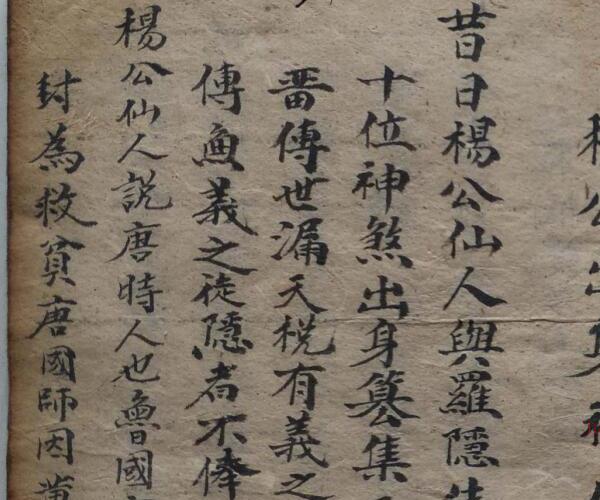 楊公出身
昔日楊公仙人與羅隱先
十位神煞出身篡集
畨傳世漏天梲有義之
傳奐義之徒隱者不俸
楊公仙人説唐時人也魯國
封為救貧唐國師因黄